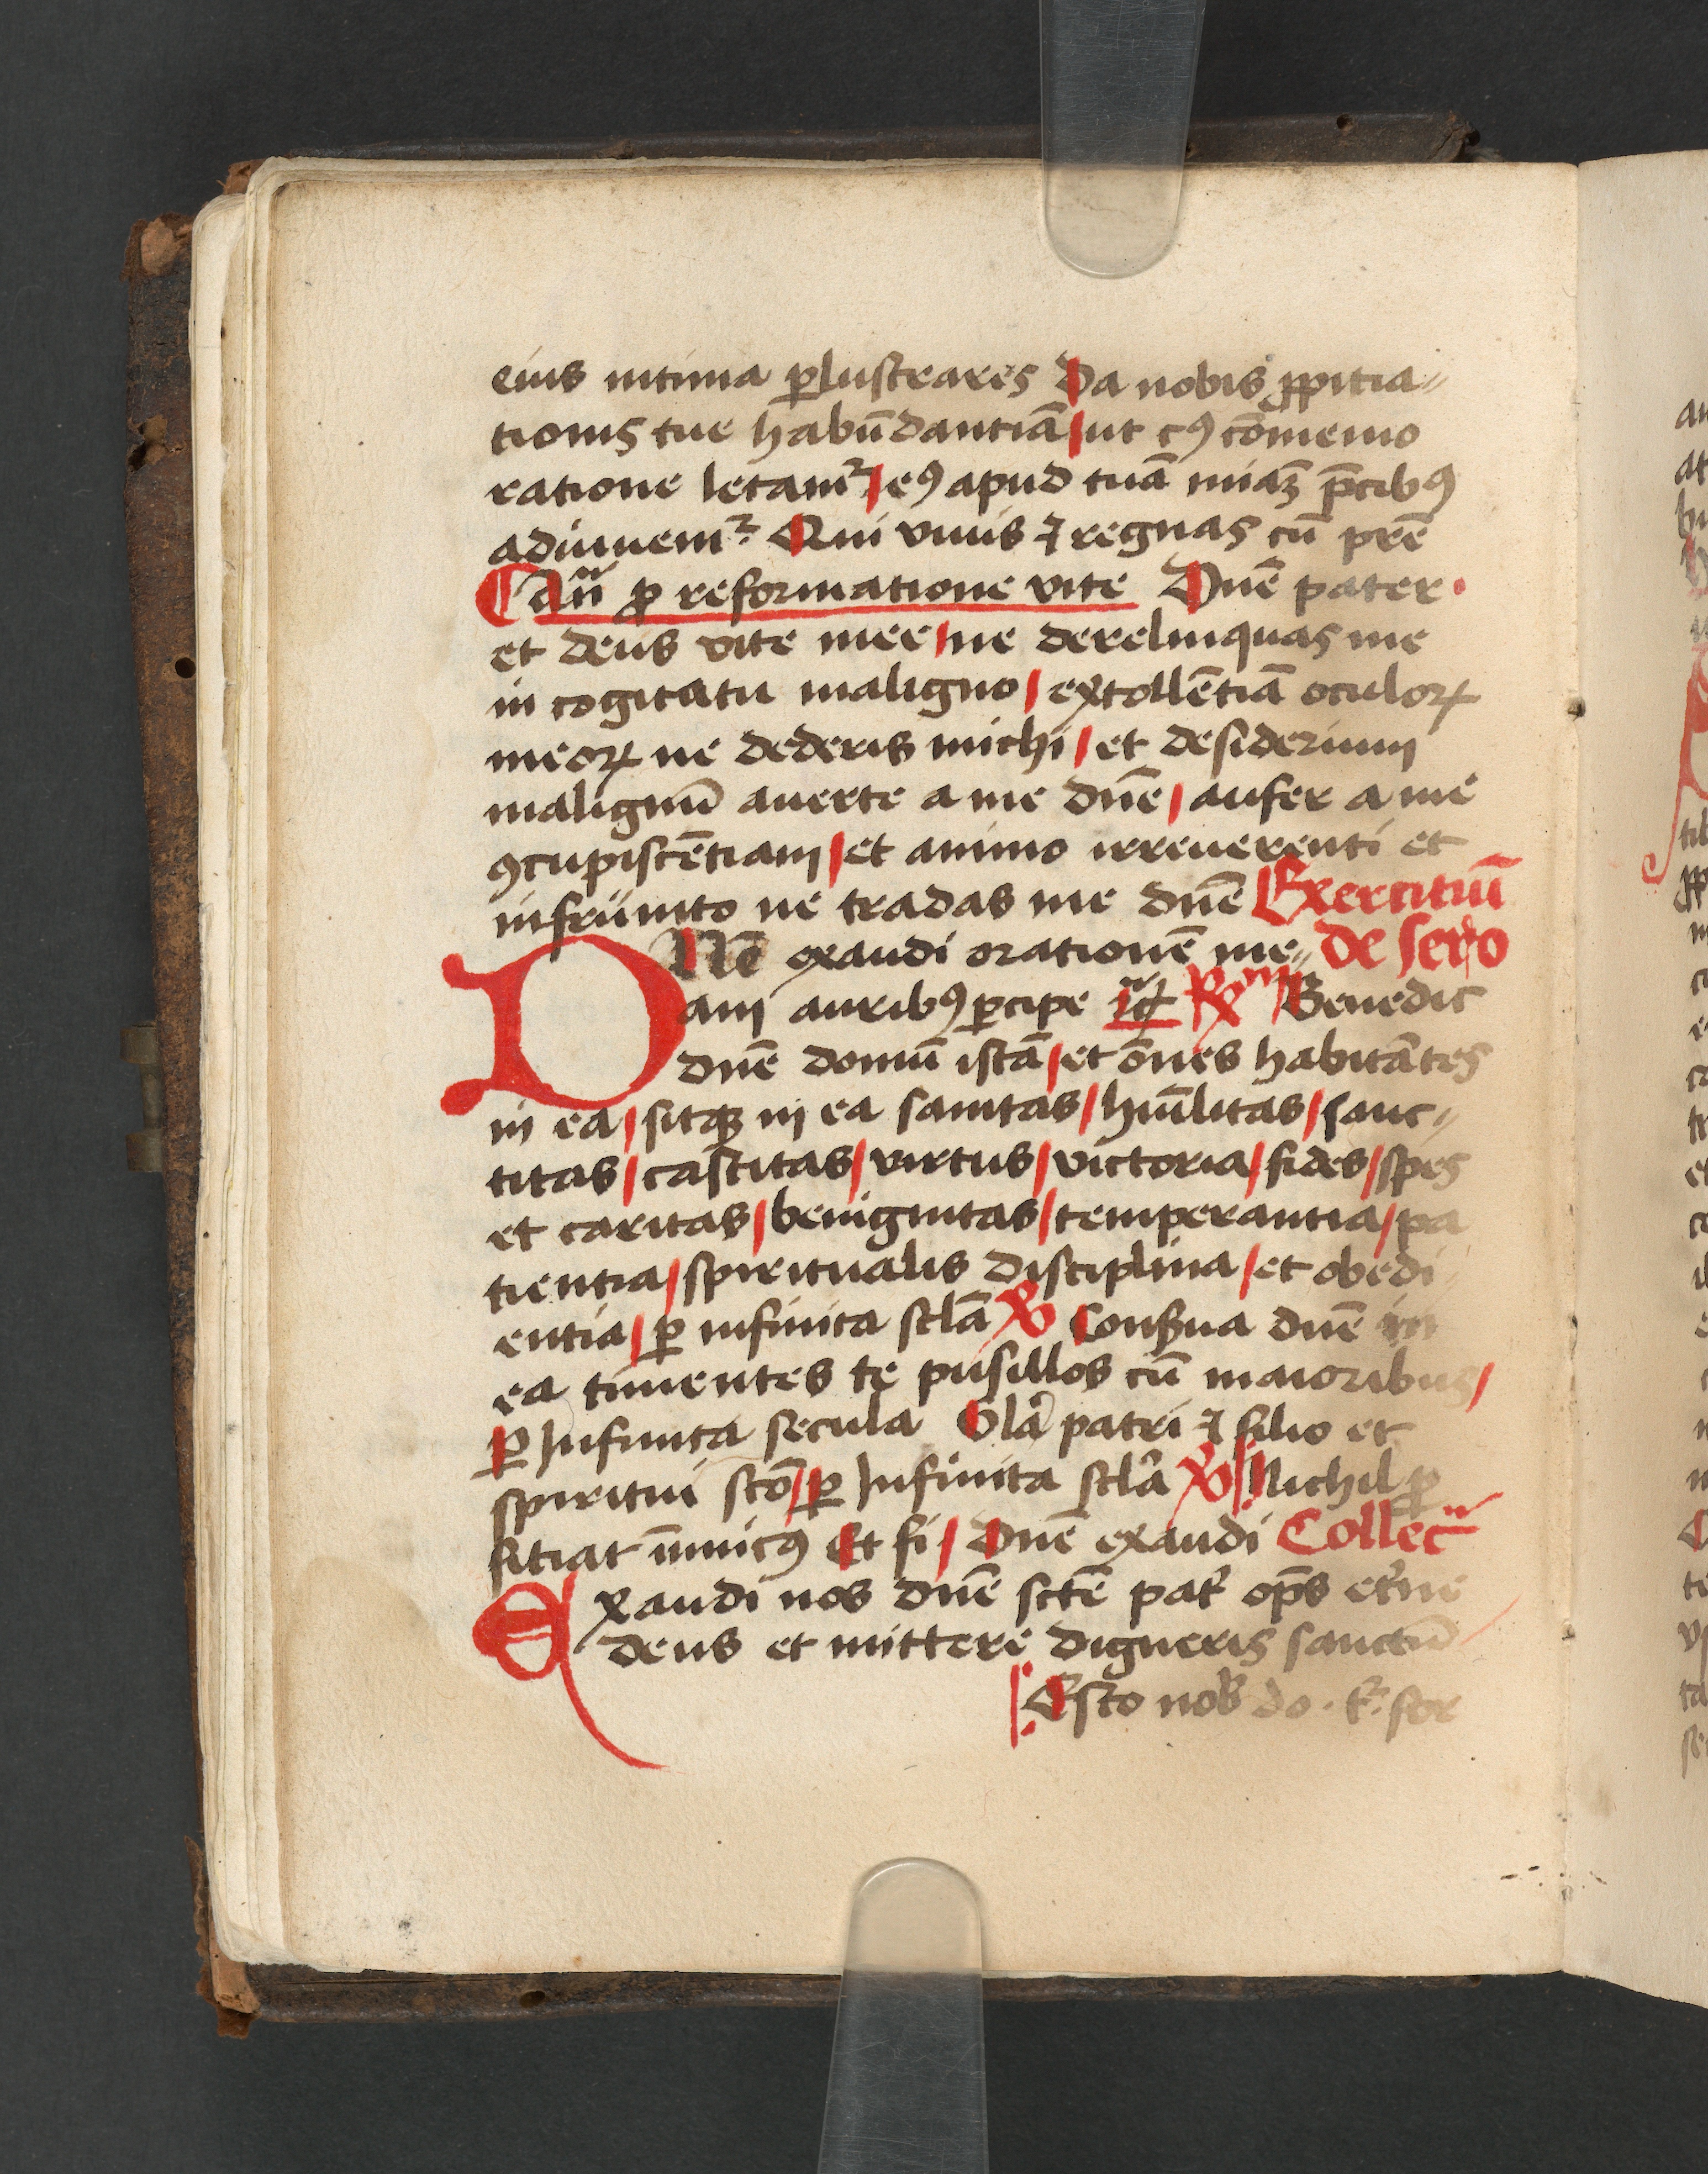 eius intima ꝑlustrares Da nobis ꝓpitia⸗
tionis tue habūdantiā / ut cꝰ cōmemo
ratione letamᷣ / eꝰ apud tuā miāꝫ p̄cibꝰ
adiuuemᷣ Qui viuis ⁊ regnas cū pr̄e
an̄ ꝓ reformatione vite Dn̄e pater ·
et deus vite mee / ne derelinquas me
in cogitatu maligno / extollētiā oculoꝝ
meoꝝ ne dederis michi / et desiderium
malignū auerte a me dn̄e / aufer a me
ꝯcupiscētiam / et animo irreuerenti et
infrunito ne tradas me dn̄e Exercitiū
DNē exaudi orationē me⸗ de sero
am auribꝰ ꝑcipe Benedic
dn̄e domū istā / et om̄es habitātes
in ea / sitqꝫ in ea sanitas / hūilitas / sanc⸗
titas / castitas / virtus / victoria / fides / spes
et caritas / benignitas / temperantia / pa
tientia / spiritualis disciplina / et obedi
entia / ꝑ infinita sclā ℟ Conẜua dn̄e in
ea timentes te pusillos cū maioribus /
ꝑ Infinita secula Glā patri ⁊ filio et
spiritui scō / ꝑ Infinita sclā Nichil ꝓ
fitiat inimicꝰ Et fi / Dn̄e exaudi Collec
Exaudi nos dn̄e sctē pat̉ op̄s et̉ne
deus et mittere digneris sanctū
Esto nob̉ do · t᷑ · for